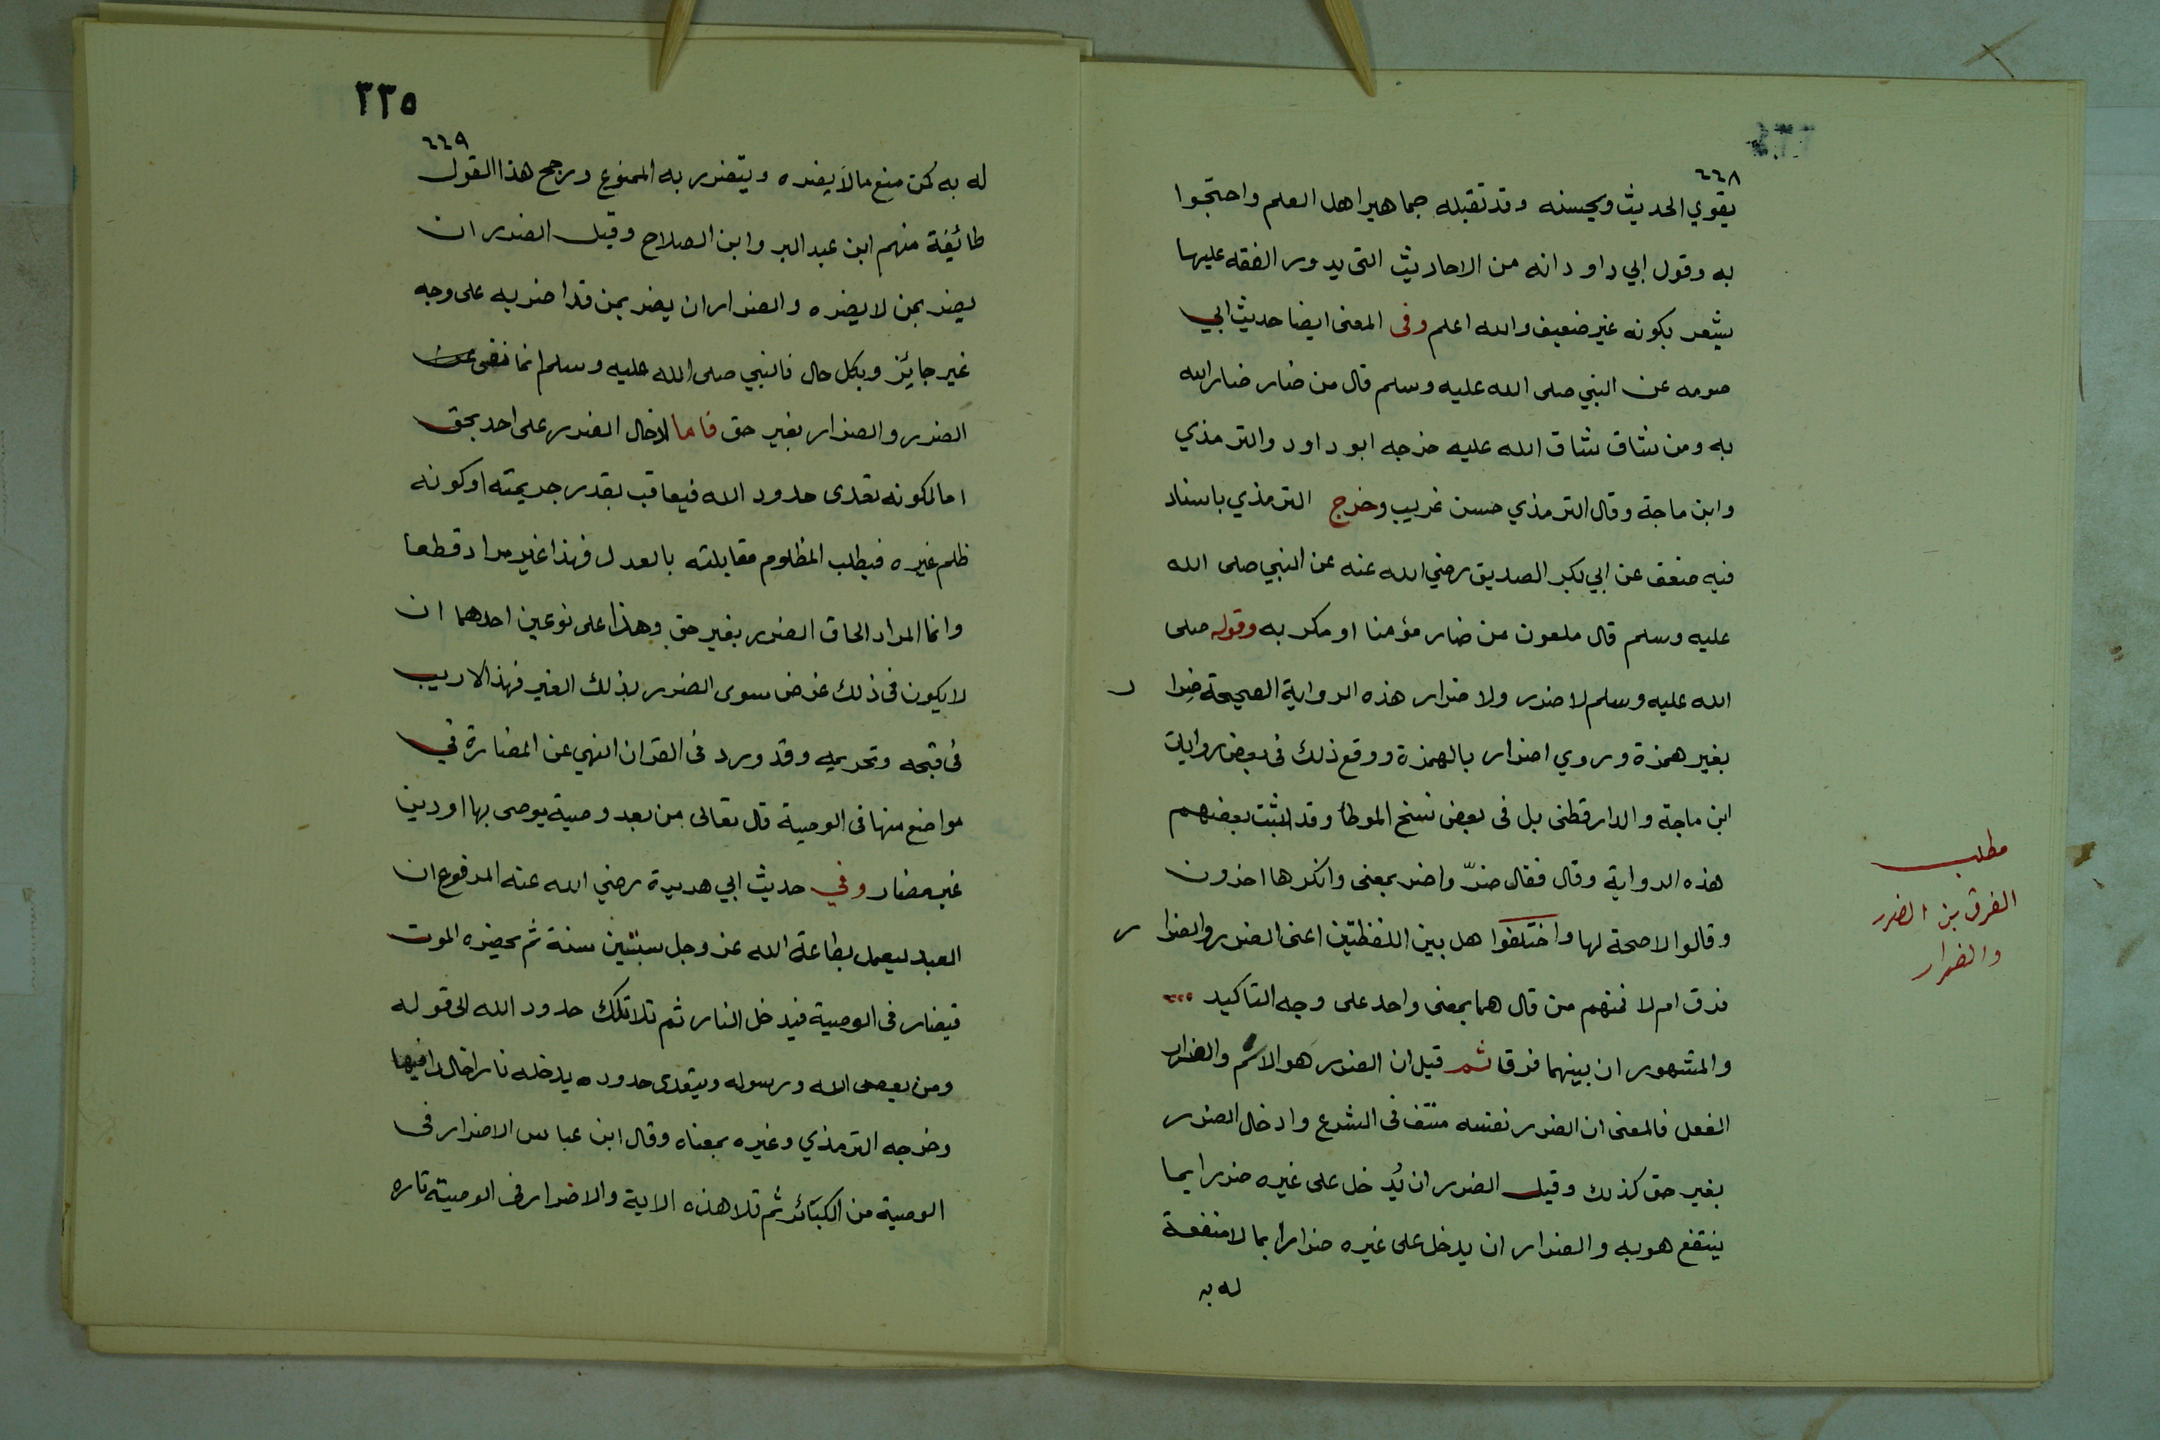 ٦٦٨
يقوي الحديث ويحسنه وقد تقبله جماهير اهل العلم واحتجوا
به وقول ابي داود انه من الاحاديث التي يدور الفقه عليها
يشعر بكونه غير ضعيف والله اعلم وفى المعنى ايضا حديث ابي
صرمه عن النبي صلى الله عليه وسلم قال من ضار ضار الله
به ومن شاق شاق الله عليه خرجه ابو داود والترمذي
وابن ماجة وقال الترمذي حسن غريب وخرج الترمذي باسناد
فيه ضعف عن ابي بكر الصديق رضي الله عنه عن النبي صلى الله
عليه وسلم قال ملعون من ضار مؤمنا او مكر به وقوله صلى
الله عليه وسلم لا ضرر ولا ضرار هذه الرواية الصحيحة ضرا ر
بغير همزة وروي اضرار بالهمزة ووقع ذلك فى بعض روايات
ابن ماجة والدارقطنى بل فى بعض نسخ الموطأ وقد اثبت بعضهم
هذه الرواية وقال فقال ضرّ واضر بمعنى وانكرها اخرون
وقالوا لا صحة لها واختلفوا هل بين اللفظتين اعنى الضرر والضرا ر
فرق ام لا فمنهم من قال هما بمعنى واحد على وجه التاكيد
والمشهور ان بينهما فرقا ثم قيل ان الضرر هو الاسم والضرار
الفعل فالمعنى ان الضرر نفسه منتف فى الشرع وادخال الضرر
بغير حق كذلك وقيل الضرر ان يُدخل على غيره ضررا يما
ينتفع هو به والضرار ان يدخل على غيره ضرارا بما لا منفعة
له به
مطلب
الفرق بين الضرر
والضرار
٣٣٥
٦٦٩
له به كمن منع مالا يضره ويتضرر به الممنوع ورجح هذا القول
طائفة منهم ابن عبد البر وابن الصلاح وقيل الضرر ان
يضر بمن لا يضره والضرار ان يضر بمن قد اضر به على وجه
غير جائز وبكل حال فالنبي صلى الله عليه وسلم انما نفى عن
الضرر والضرار بغير حق فاما ادخال الضرر على احد بحق
اما لكونه تعدى حدود الله فيعاقب بقدر جريمته او كونه
ظلم غيره فيطلب المظلوم مقابلته بالعدل فهذا غير مراد قطعا
وانما المراد الحاق الضرر بغير حق وهذا على نوعين احدهما ان
لا يكون فى ذلك غرض سوى الضرر بذلك الغير فهذا لا ريب
فى قبحه وتحريمه وقد ورد فى القران النهي عن المضارة في
مواضع منها فى الوصية قال تعالى من بعد وصية يوصى بها او دين
غير مضار وفي حديث ابي هريرة رضي الله عنه المرفوع ان
العبد ليعمل بطاعة الله عز وجل ستين سنة ثم يحضره الموت
فيضار فى الوصية فيدخل النار ثم تلا تلك حدود الله الى قوله
ومن يعصى الله ورسوله ويتعدى حدوده يدخله نارا خالدا فيها
وخرجه الترمذي وغيره بمعناه وقال ابن عباس الاضرار فى
الوصية من الكبائر ثم تلا هذه الاية والاضرار فى الوصية تاره